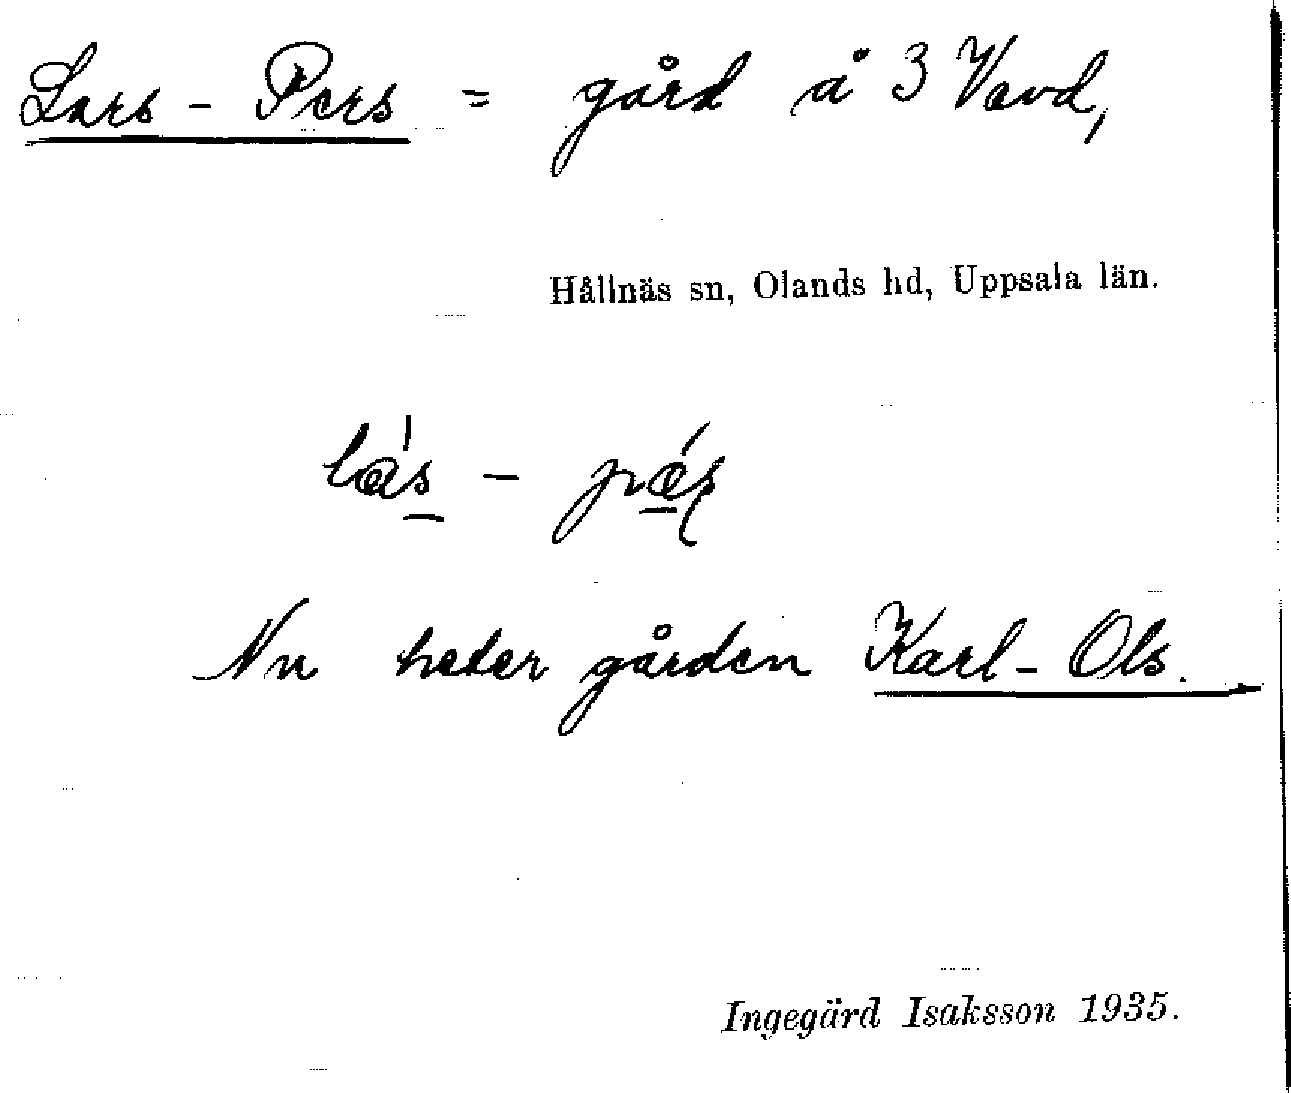 Lars - Pers = gård å 3 Vavd,
Hållnäs sn, Olands hd, Uppsala län.
Nu heter gården Karl-Ols.
Ingegärd Isaksson 1935.